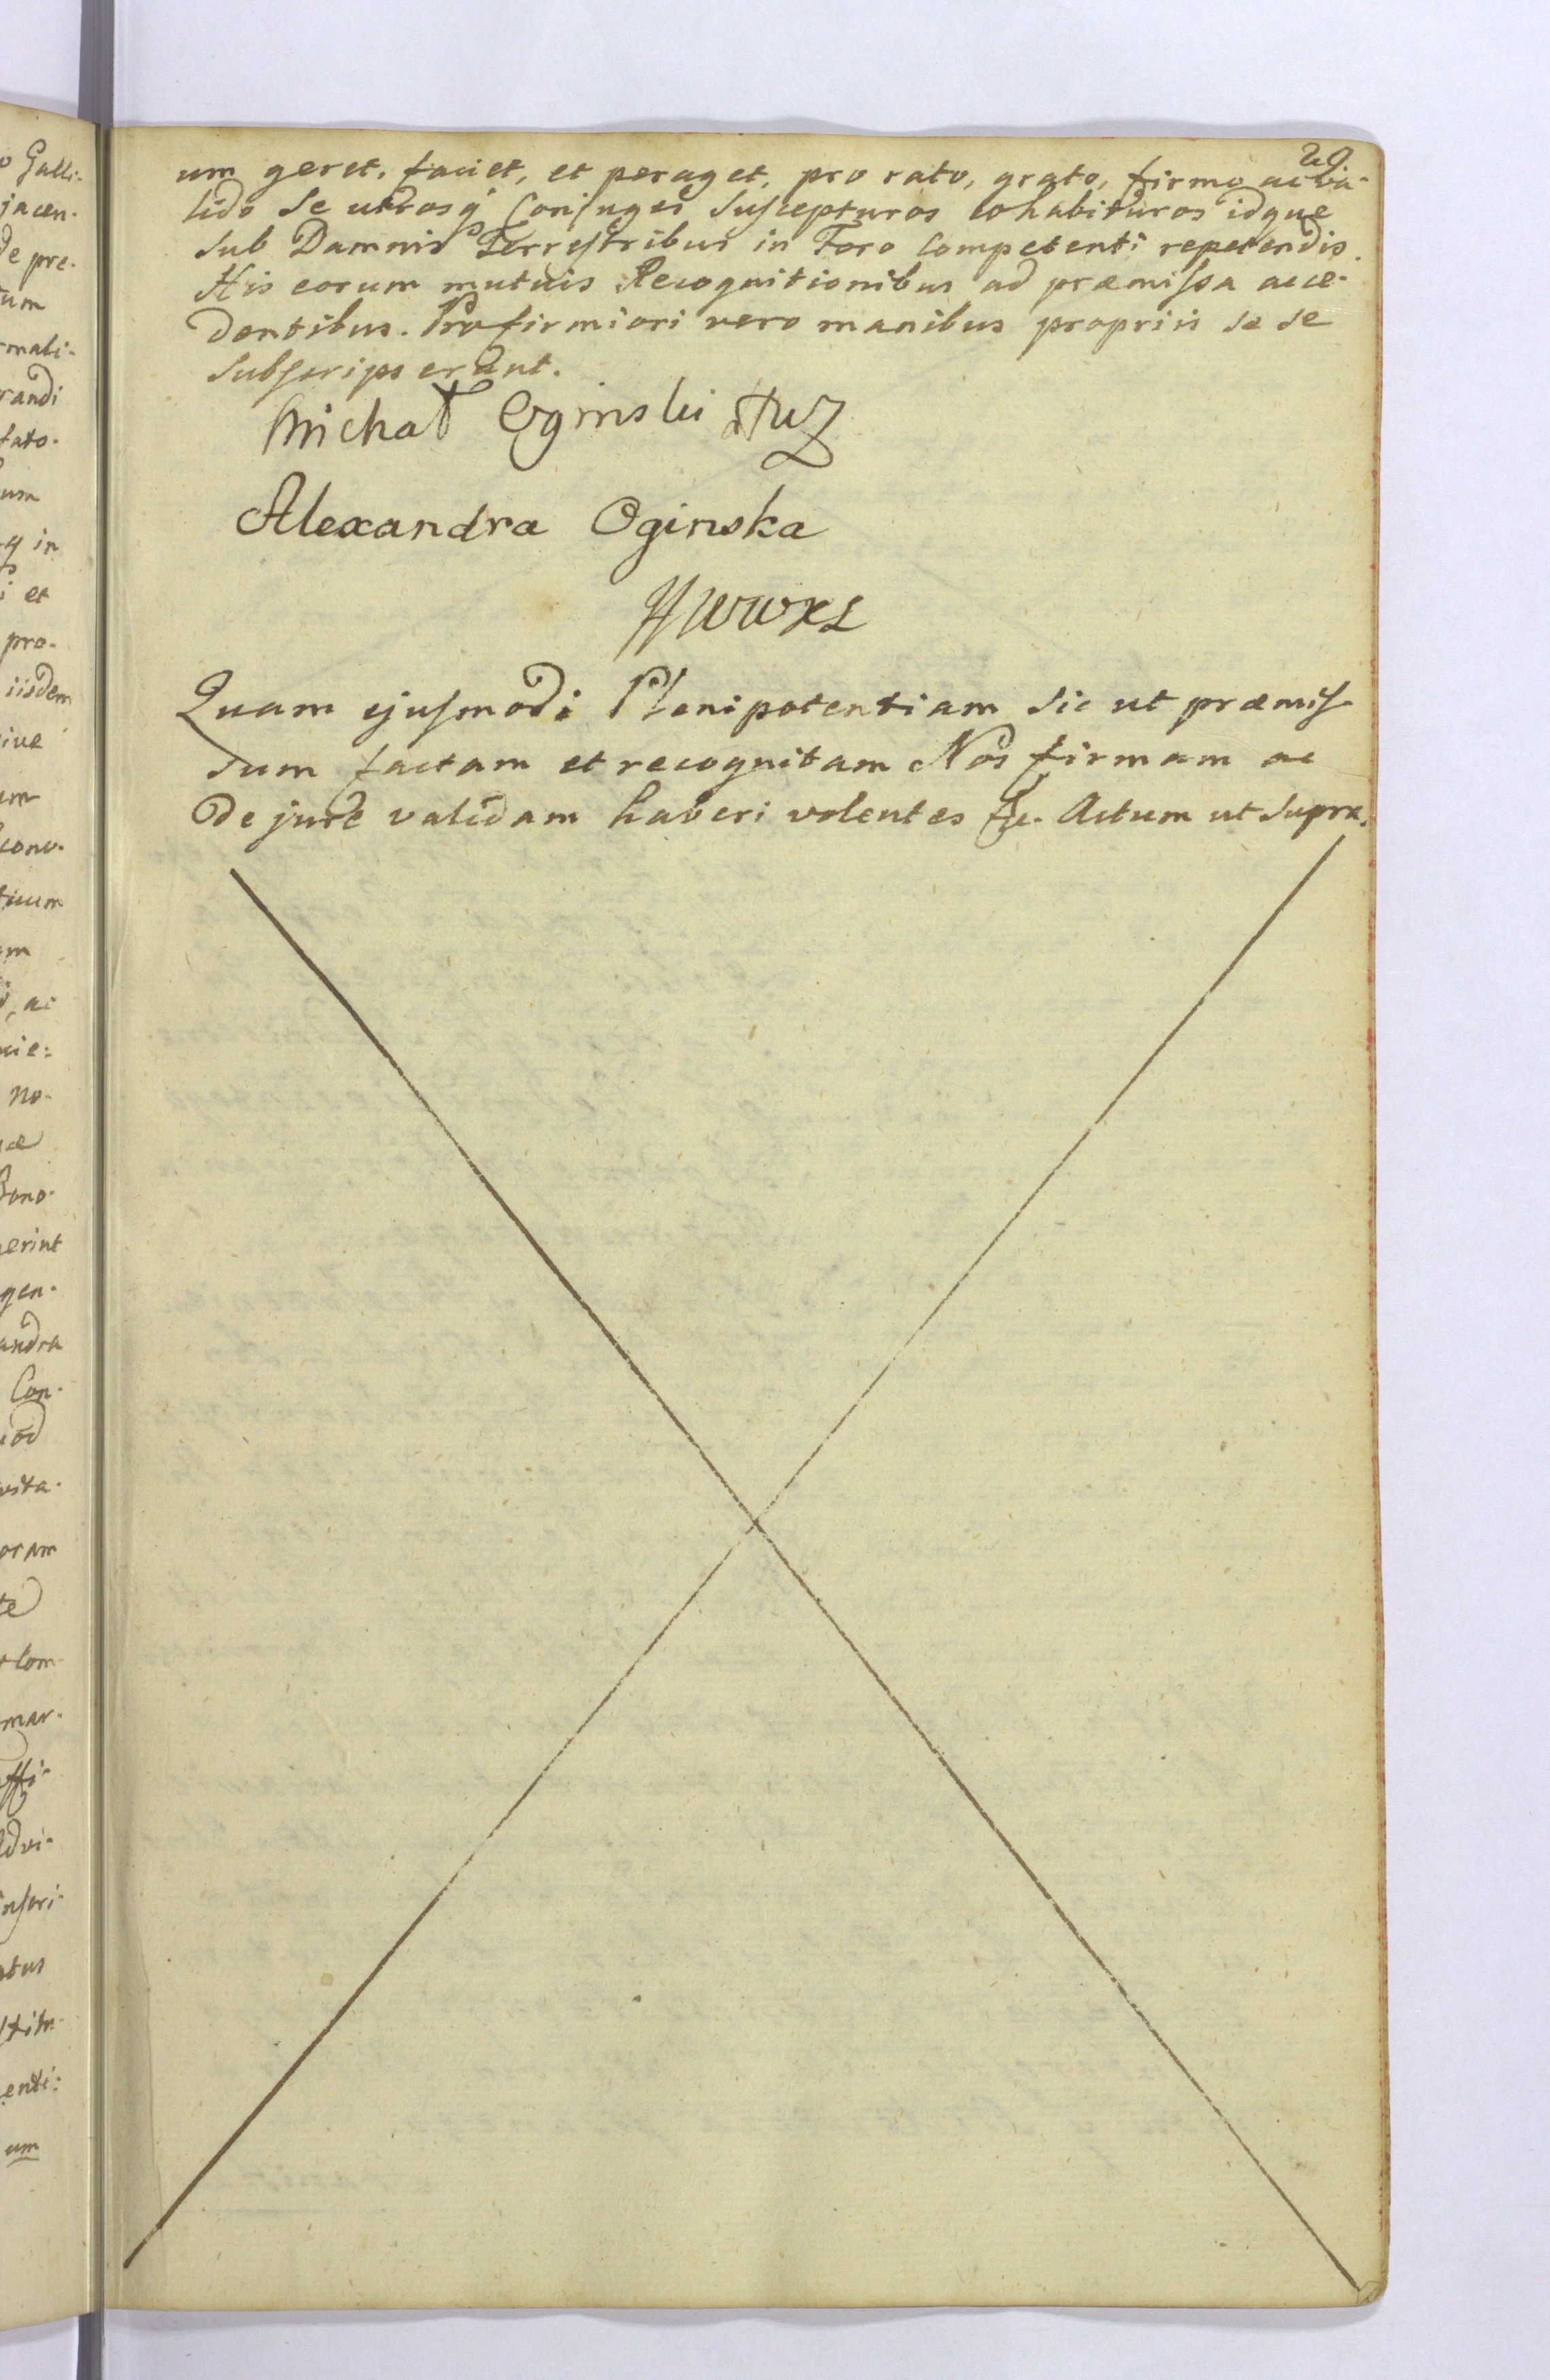 29
um geret, faciet, et peraget, pro rato, grato, firmo ac va-
lido Se utrosq Conjuges Suscepturos cohabituros idque
Sub Damnis Terrestribus in Foro Competenti repetendis.
His eorum mutuis Recognitionibus ad præmissa acce-
dentibus. Pro firmiori vero manibus propriis Se Se
Subscripserunt.
Michał Oginski
Alexandra Oginska
HWWXL
Quam ejusmodi Plenipotentiam Sic ut præmis-
sum factam et recognitam Nos firmam ac
de jure validam haberi volentes &c. Actum ut Supra.
o Galli-
jacen-
de pre-
um
mali-
randi
tato-
um
q in
i et
pro-
iisdem
ive
um
conv-
tuum
m
ac
cie:
no-
æ
Bono-
erint
gen-
andra
Con-
od
vita-
oram
te
Com-
mar-
ffi-
dvi-
nseri-
tus
titu-
enti:
um